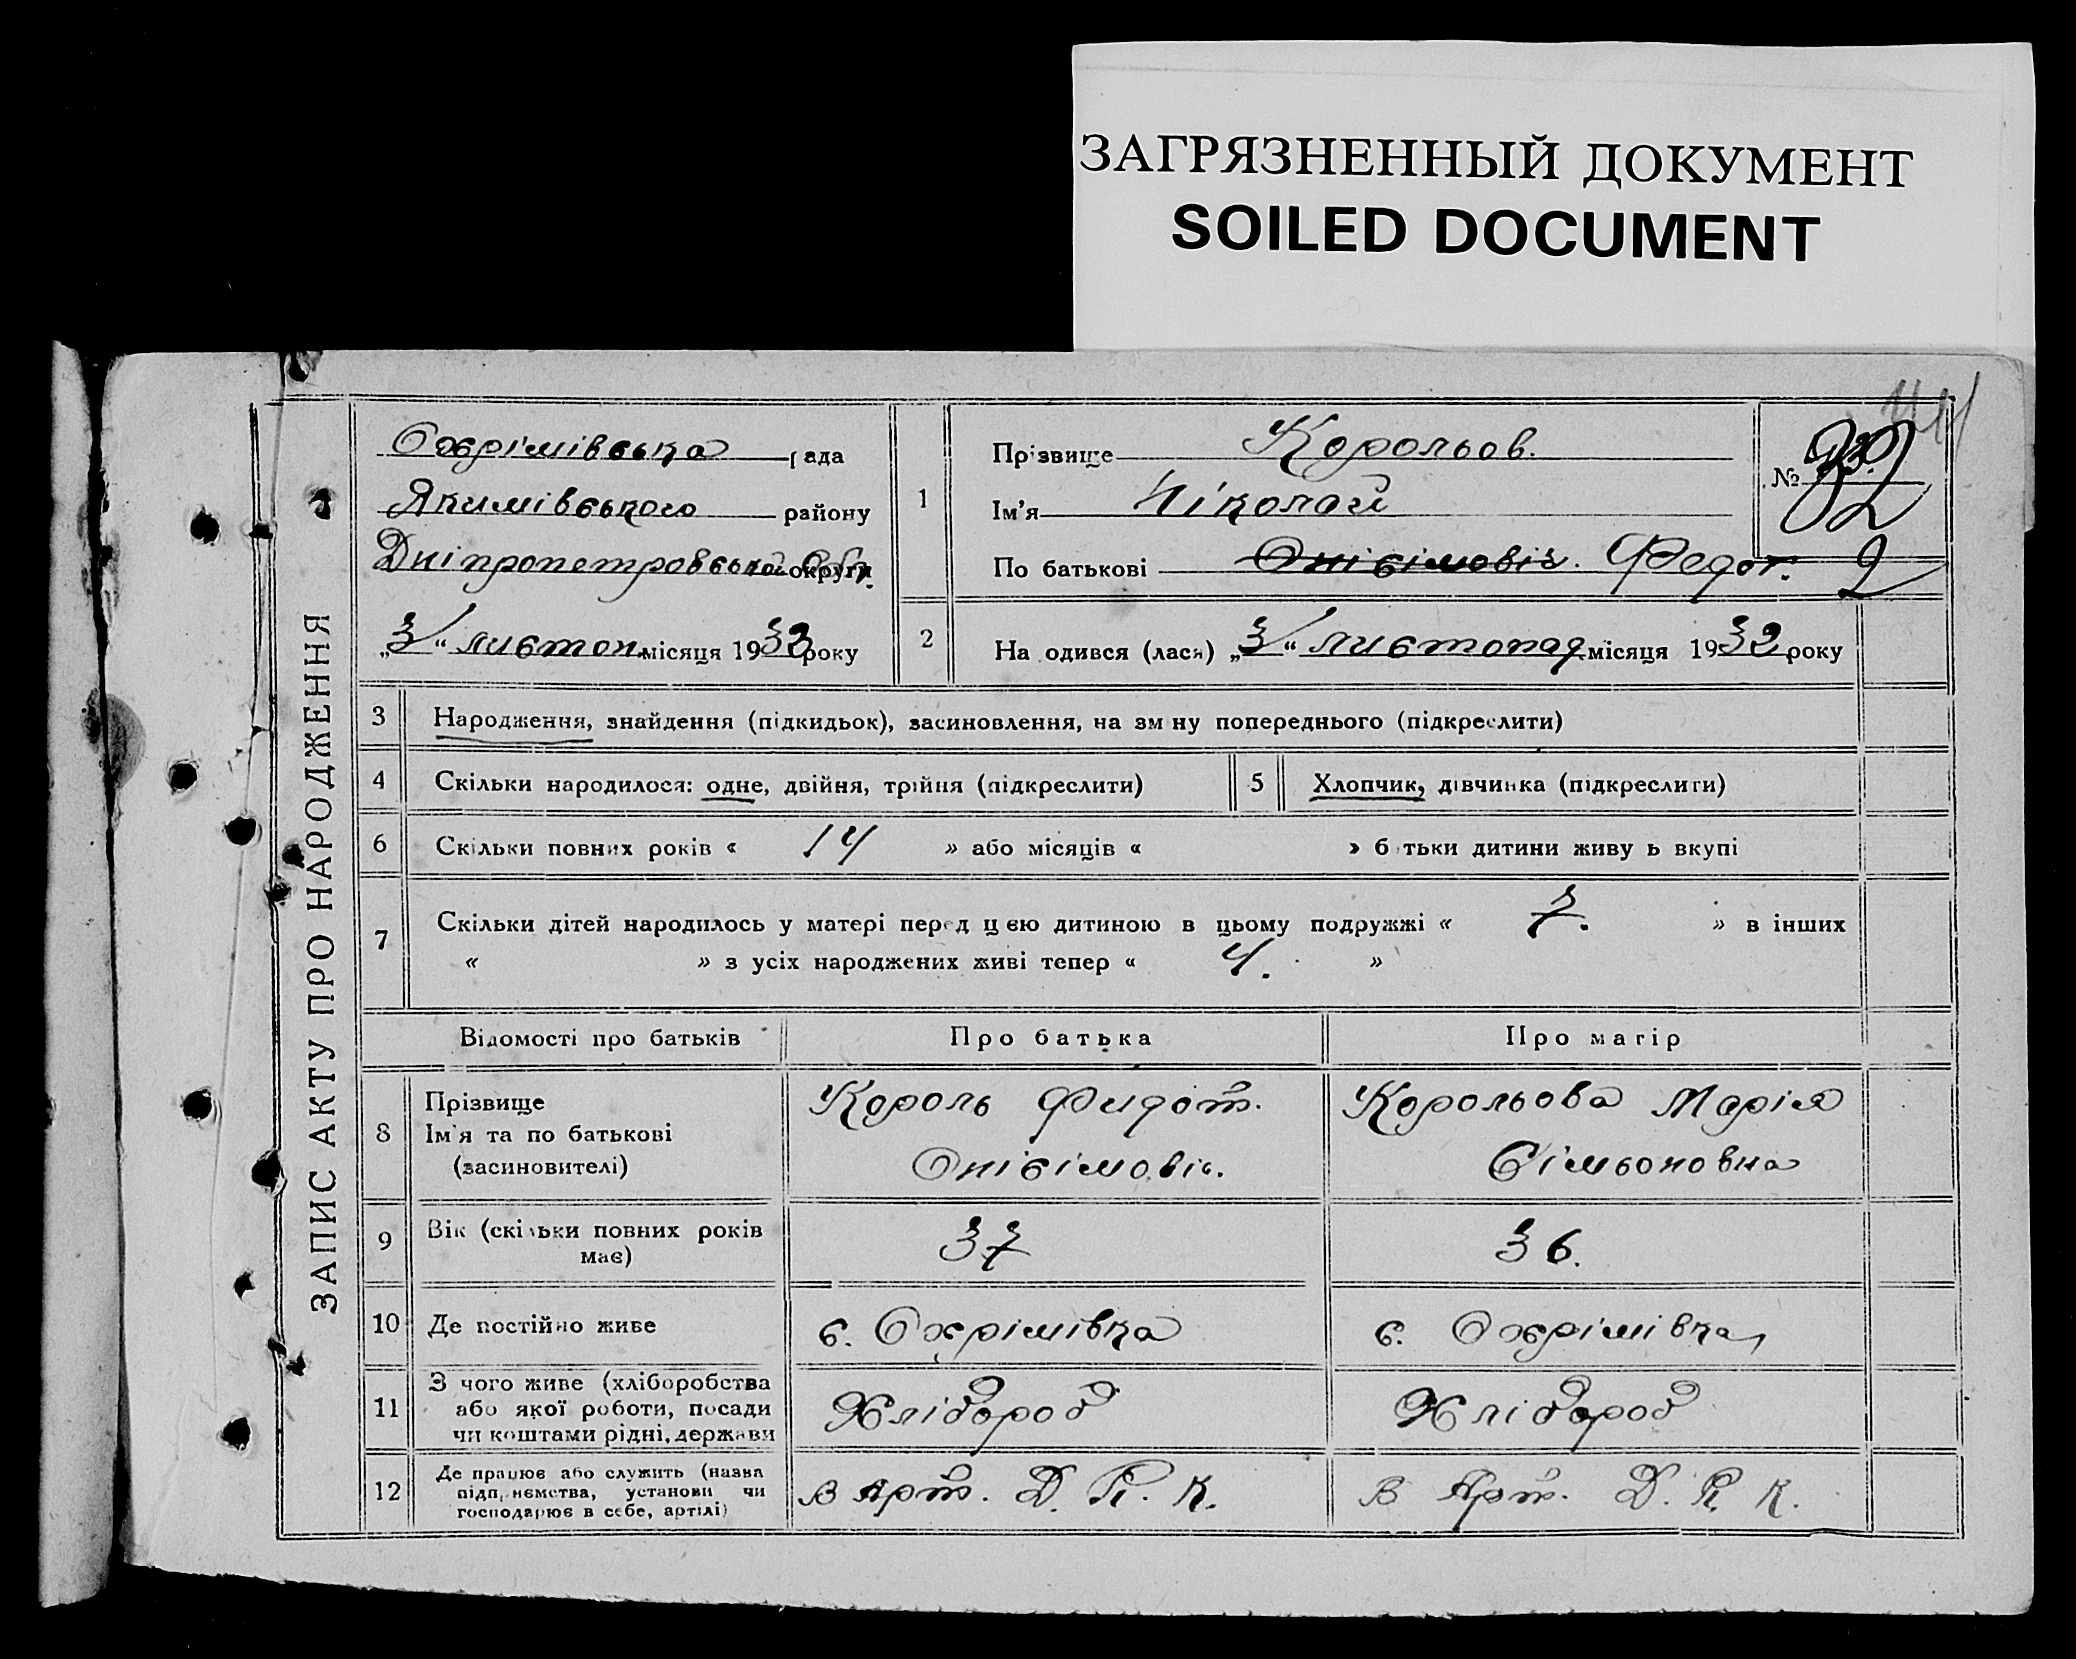 ЗАГРЯЗНЕННЫЙ ДОКУМЕНТ
SOILED DOCUMENT
ЗАПИС АКТУ ПРО НАРОДЖЕННЯ
Охрімівська рада
Якимівського району
Дніпропетровської Обл. округи
„3“ листоп. місяця 1932 року
1
Прізвище Корольов.
Ім'я Ніколай
По батькові Онісімовіч. Федот.
№ 2
2
2 На одився (лася) „3“ листопад місяця 1932 року
3 Народження, знайдення (підкидьок), засиновлення, на зм ну попереднього (підкреслити)
4 Скільки народилося: одне, двійня, трійня (підкреслити)
5 Хлопчик, дівчинка (підкреслити)
6 Скільки повних років « 14 » або місяців « » б тьки дитини живу ь вкупі
7 Скільки дітей народилось у матері перед цею дитиною в цьому подружжі « 7. » в інших
« » з усіх народжених живі тепер « 4. »
Відомості про батьків Про батька Про матір
8 Прізвище
Ім'я та по батькові
(засиновителі)
Король Фидот.
Онісімовіч.
Корольова Марія
Сімьоновна
9 Вік (скільки повних років
має)
37
36.
10 Де постійно живе
с. Охрімівка
с. Охрімівка
11 З чого живе (хліборобства
або якої роботи, посади
чи коштами рідні, держави
Хлібороб
Хлібороб
12 Де працює або служить (назва
підпр ємства, установи чи
господарює в себе, артілі)
в Арт. Д. Р. К.
в Арт. Д. Р. К.